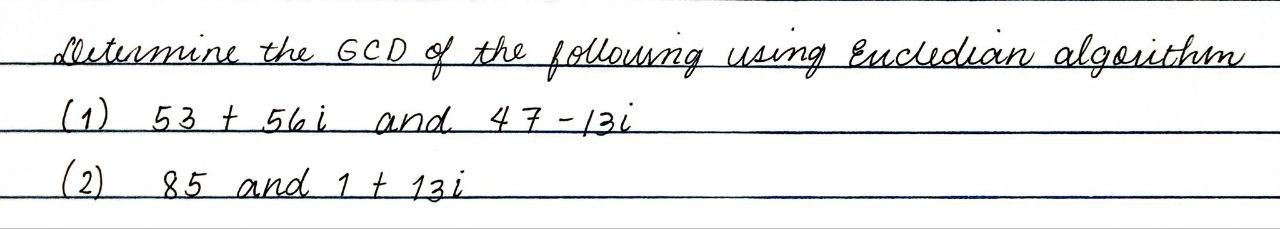 Determine the GCD of the following using Eucledian algorithm
(1) 53 + 56i and 47 - 13i
(2) 85 and 1 + 13i